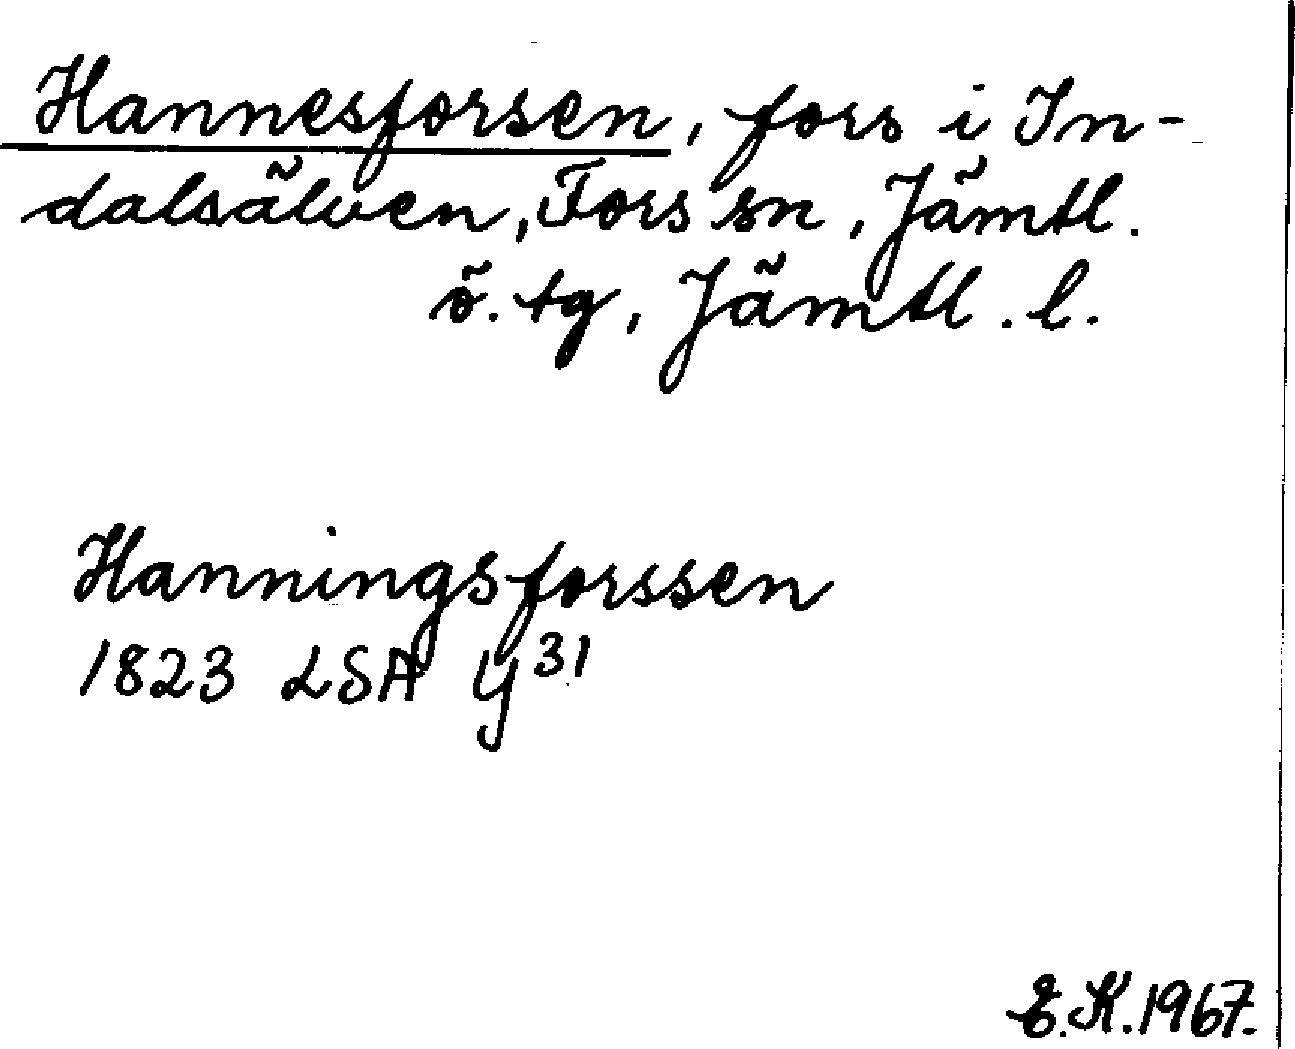 Hannesforsen, fors i In-
dalsälven, Fors sn, Jämtl.
ö. tg, Jämtl. l.
Hanningsforssen
1823 LSA Y³¹
E.K. 1967.